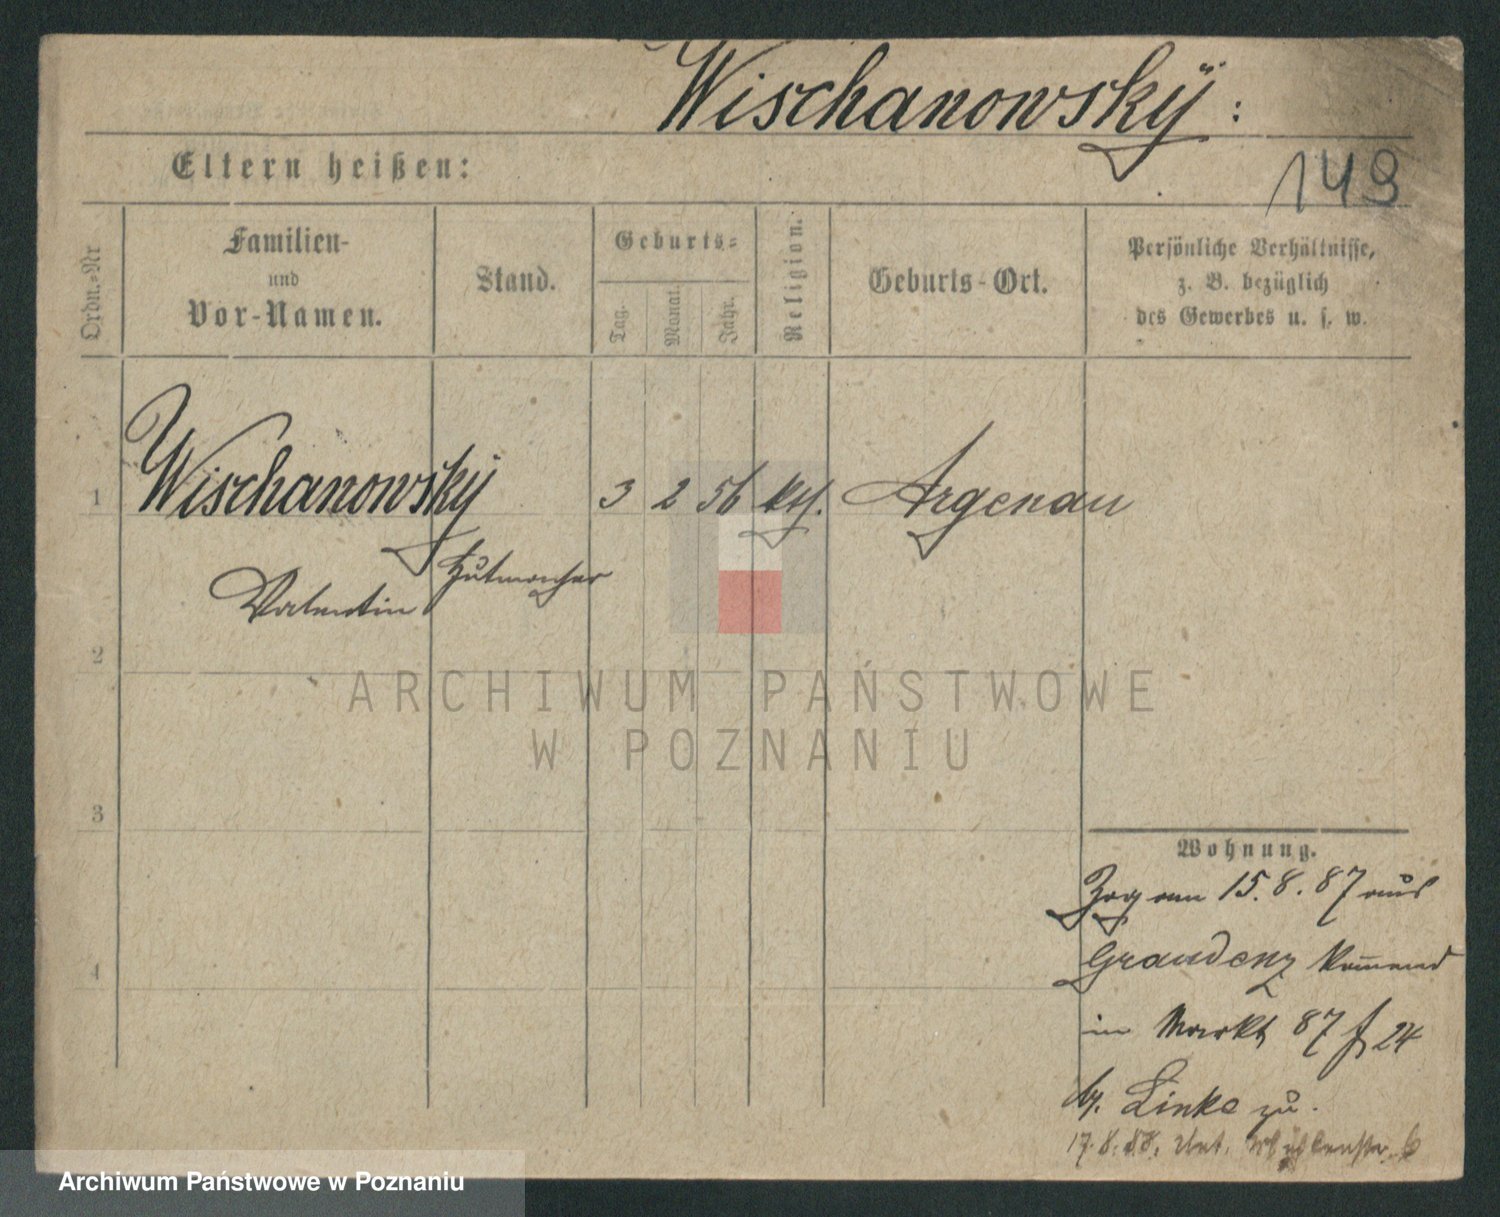 Wischanowskÿ:
149
Eltern heißen:
Ordn.=Nr
Familien-
und
Vor-Namen.
Stand.
Geburts=
Tag.
Monat.
Jahr.
Religion.
Geburts-Ort.
Persönliche Verhältnisse,
z. B. bezüglich
des Gewerbes u. s. w.
1 Wischanowskÿ 3 2 56 kth. Argenau
Valentin Hutmacher
2
3
4
ARCHIWUM PAŃSTWOWE
W POZNANIU
Wohnung.
Zog am 15.8.87 aus
Graudenz kommend
im Markt 87 24
bz. Linke zu.
17.8.88. Unt. Mühlenstr. 6
Archiwum Państwowe w Poznaniu